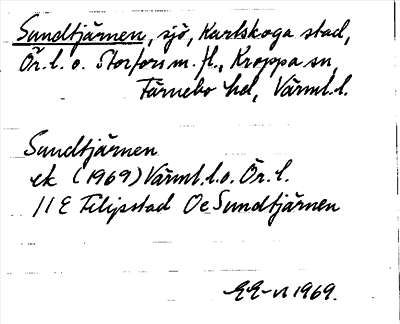 Sundtjärnen, sjö, Karlskoga stad,
Ör. l. o. Storfors m. fl., Kroppa sn,
Färnebo hd, Värml. l.
Sundtjärnen
ek (1969) Värml. l. o. Ör. l.
11 E Filipstad Oe Sundtjärnen
1969.